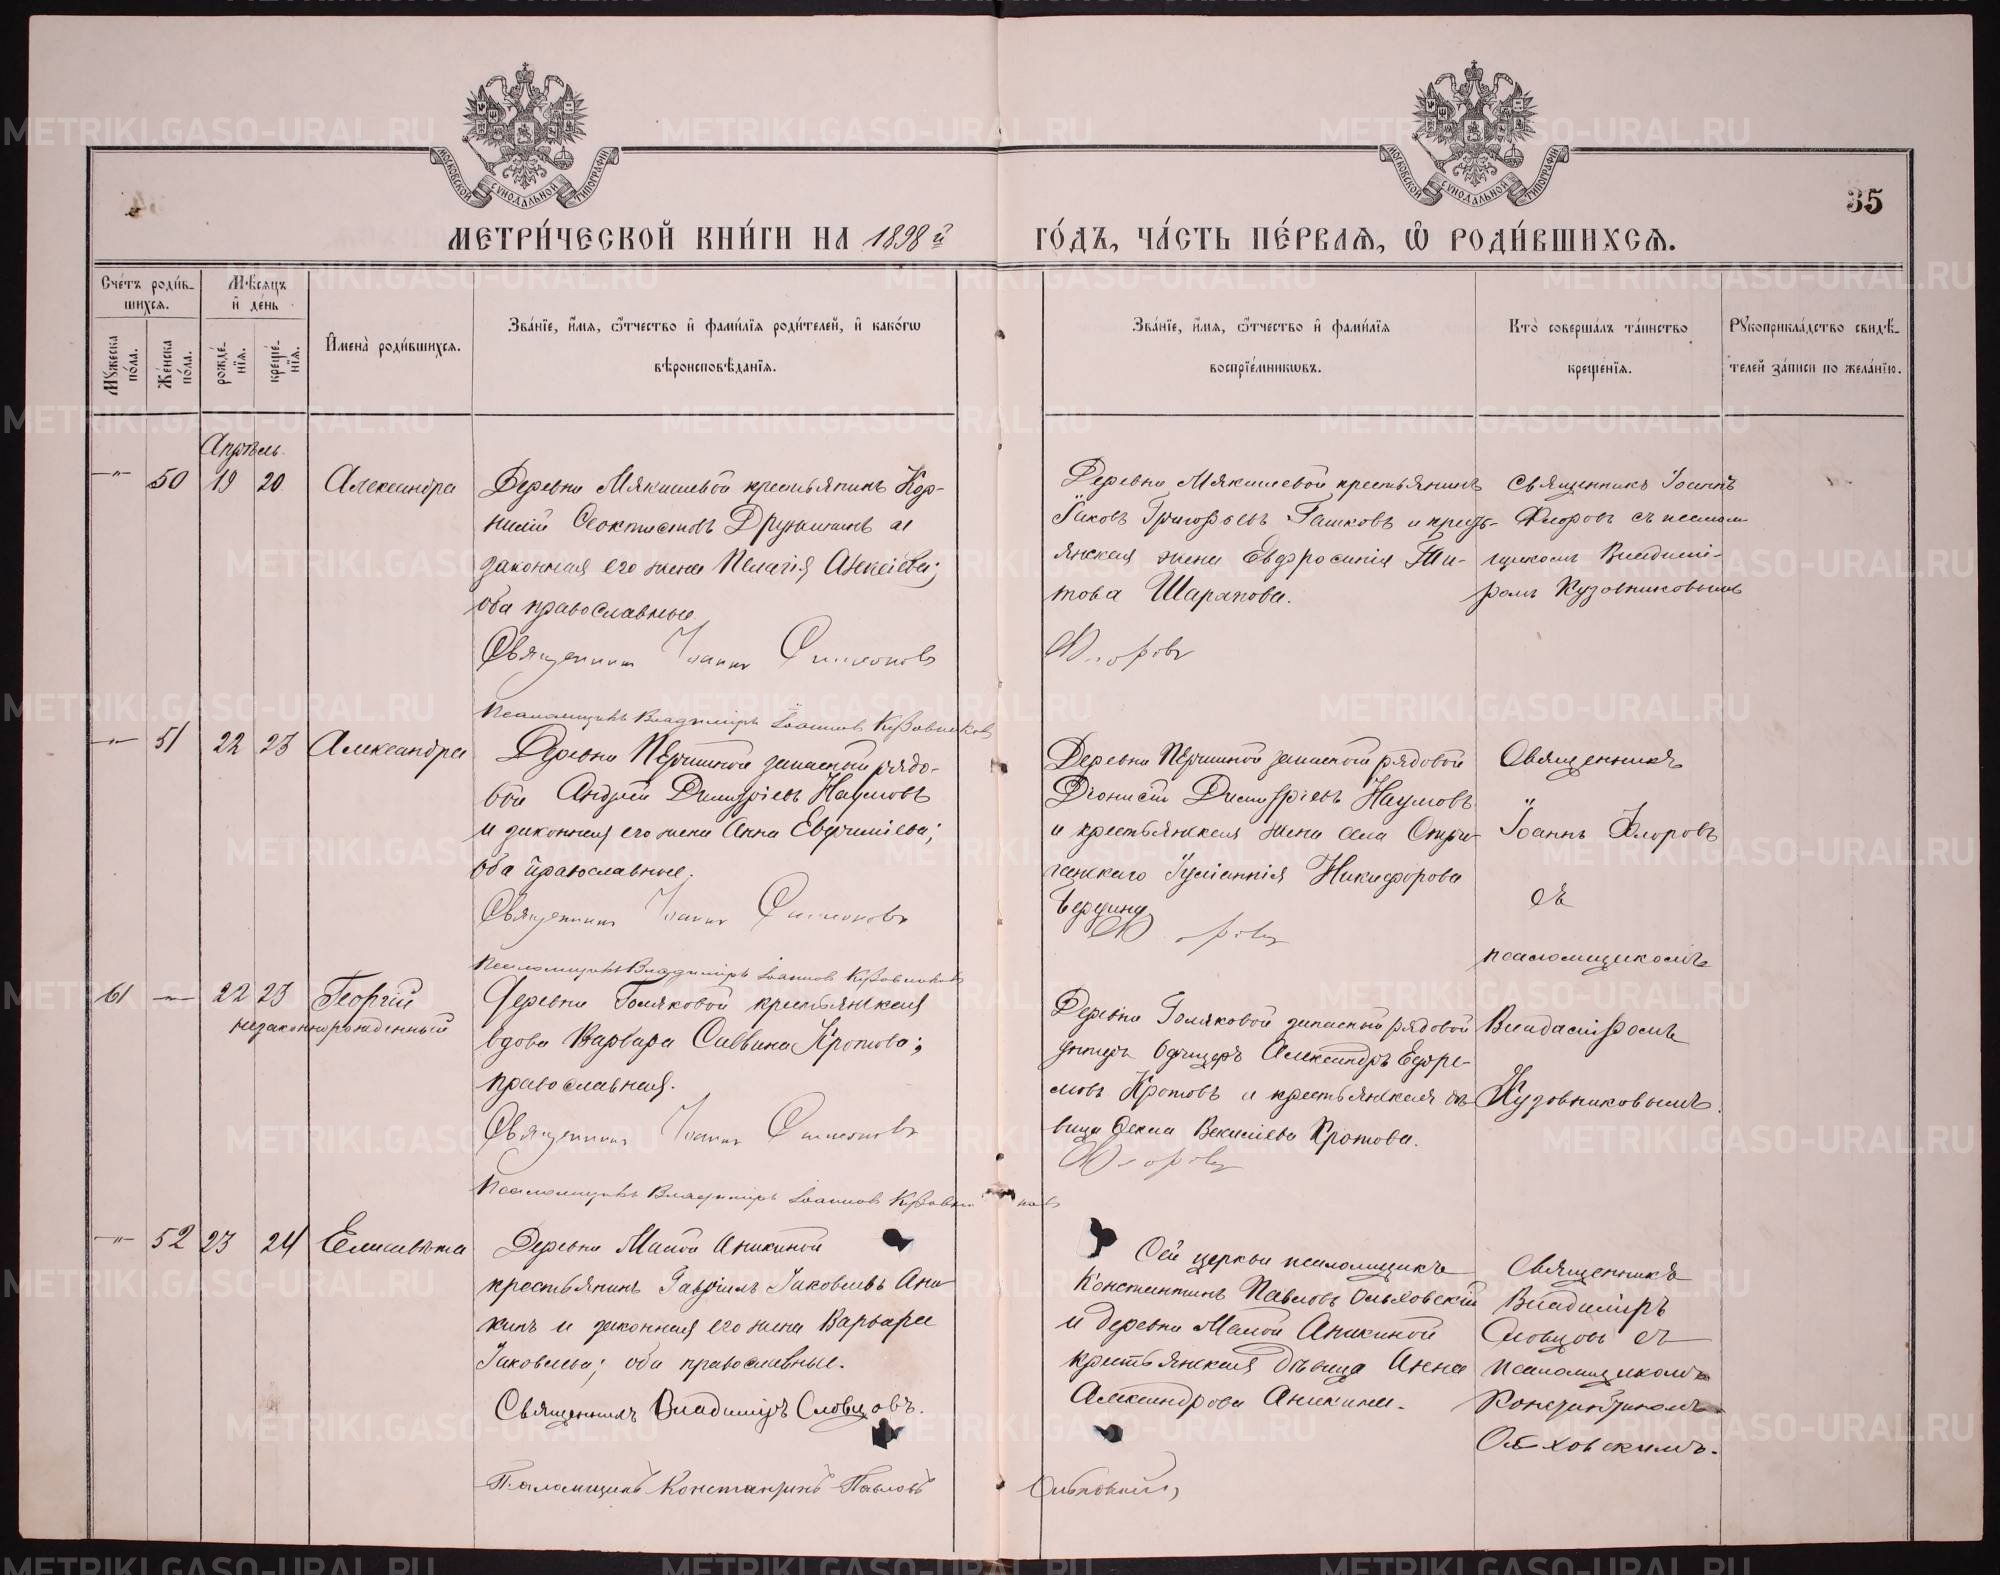 МОСКОВСКОЙ СУНОДАЛЬНОЙ ТИПОГРАФИИ
МОСКОВСКОЙ СУНОДАЛЬНОЙ ТИПОГРАФИИ
35
МЕТРИ́ЧЕСКОЙ КНИ́ГИ НА 1898й ГО́ДЪ, ЧА́СТЬ ПЕ́РВАѦ, Ѡ РОДИ́ВШИХСѦ.
Сче́тъ роди́в-
шихсѧ.
Мѣ́сѧцъ
и҆ де́нь
Мꙋ́жеска по́ла.
Же́нска по́ла.
рожде́-
нїѧ.
креще́-
нїѧ.
И҆мена̀ роди́вшихсѧ.
Зва́нїе, и҆́мѧ, ѻ҆́тчество и҆ фами́лїѧ роди́телей, и҆ како́гѡ
вѣроисповѣ́данїѧ.
Зва́нїе, и҆́мѧ, ѻ҆́тчество и҆ фами́лїѧ
воспрїе́мникѡвъ.
Кто̀ соверша́лъ та́инство
креще́нїѧ.
Рꙋкоприкла́дство свидѣ́-
телей за́писи по жела́нїю.
Апрѣль.
—„— 50 19 20 Александра
Деревни Мякишевой крестьянинъ Кор-
нилій Ѳеоктистовъ Дружининъ и
законная его жена Пелагія Алексіева;
оба православные.
Священник Іоанн Симоновъ
Псаломщикъ Владиміръ Іоанновъ Кузовников
Деревни Мякишевой крестьянинъ
Іаковъ Григорьевъ Гашковъ и кресть-
янская жена Евфросинія Ти-
това Шарапова.
Флоровъ
Священникъ Іоаннъ
Флоровъ съ псалом-
щикомъ Владимі-
ромъ Кузовниковымъ
—„— 51 22 23 Александра
Деревни Першиной запасный рядо-
вой Андрей Димитріевъ Наумовъ
и законная его жена Анна Евфиміева;
оба православные.
Священник Іоанн Симоновъ
Псаломщикъ Владиміръ Іоанновъ Кузовников
Деревни Першиной запасной рядовой
Діонисій Димитріевъ Наумовъ
и крестьянская жена села
Іуліаннія Никифорова
Флоровъ
Священникъ
Іоаннъ Флоровъ
съ
псаломщикомъ
Владиміромъ
Кузовниковымъ.
61 —„— 22 23 Георгій
незаконнорожденный
Деревни Голяковой крестьянская
вдова Варвара Саввина Кротова;
православная.
Священник Іоанн Симоновъ
Псаломщикъ Владиміръ Іоанновъ Кузовников
Деревни Голяковой запасный рядовой
унтеръ офицеръ Александръ Ефре-
мовъ Кротовъ и крестьянская дѣ-
вица Ѳекла Васильева Кротова.
Флоровъ
—„— 52 23 24 Елисавета
Деревни Малой Аникиной
крестьянинъ Гавріилъ Іаковлевъ Ани-
кинъ и законная его жена Варвара
Іаковлева; оба православные.
Священникъ Владиміръ Словцовъ.
Псаломщикъ Константинъ Павловъ Ольховскій
Сей церкви псаломщикъ
Константинъ Павловъ Ольховскій
и деревни Малой Аникиной
крестьянская дѣвица Анна
Александрова Аникина.
Священникъ
Владиміръ
Словцовъ съ
псаломщикомъ
Константиномъ
Ольховскимъ.
METRIKI.GASO-URAL.RU